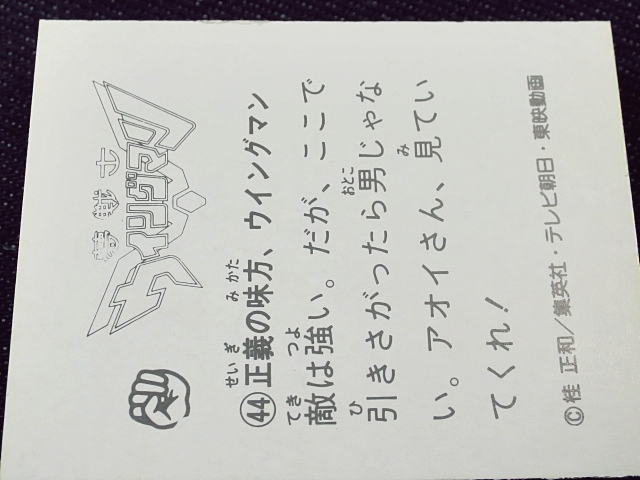 夢戦士
ウイングマン
㊹正義の味方、ウイングマン
敵は強い。だが、ここで
引きさがったら男じゃな
い。アオイさん、見てい
てくれ!
©桂 正和/集英社・テレビ朝日・東映動画